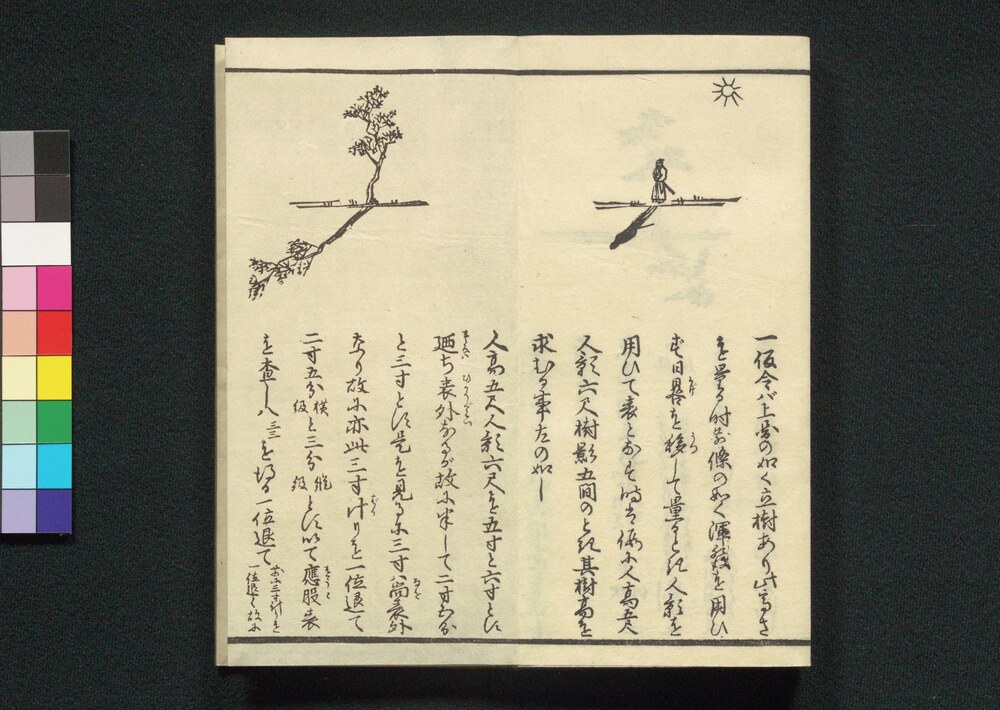 一仮令ハ上図の如く立樹あり此高さ
を量る時前條の如く渾發を用ひ
す日晷を移して量るとき人影を
用ひて表となす時は仮に人高五尺
人影六尺樹影五間のとき其樹高を
求むる事左の如し
人高五尺人影六尺を五寸と六寸とす
廼ち表外なるが故に半して二寸五分
と三寸とす是を見るに三寸ハ尚表外
たり故に亦此三寸計りを一位退て
二寸五分横級と三分縦級とす以て應股表
を査し八三三を得る一位退て